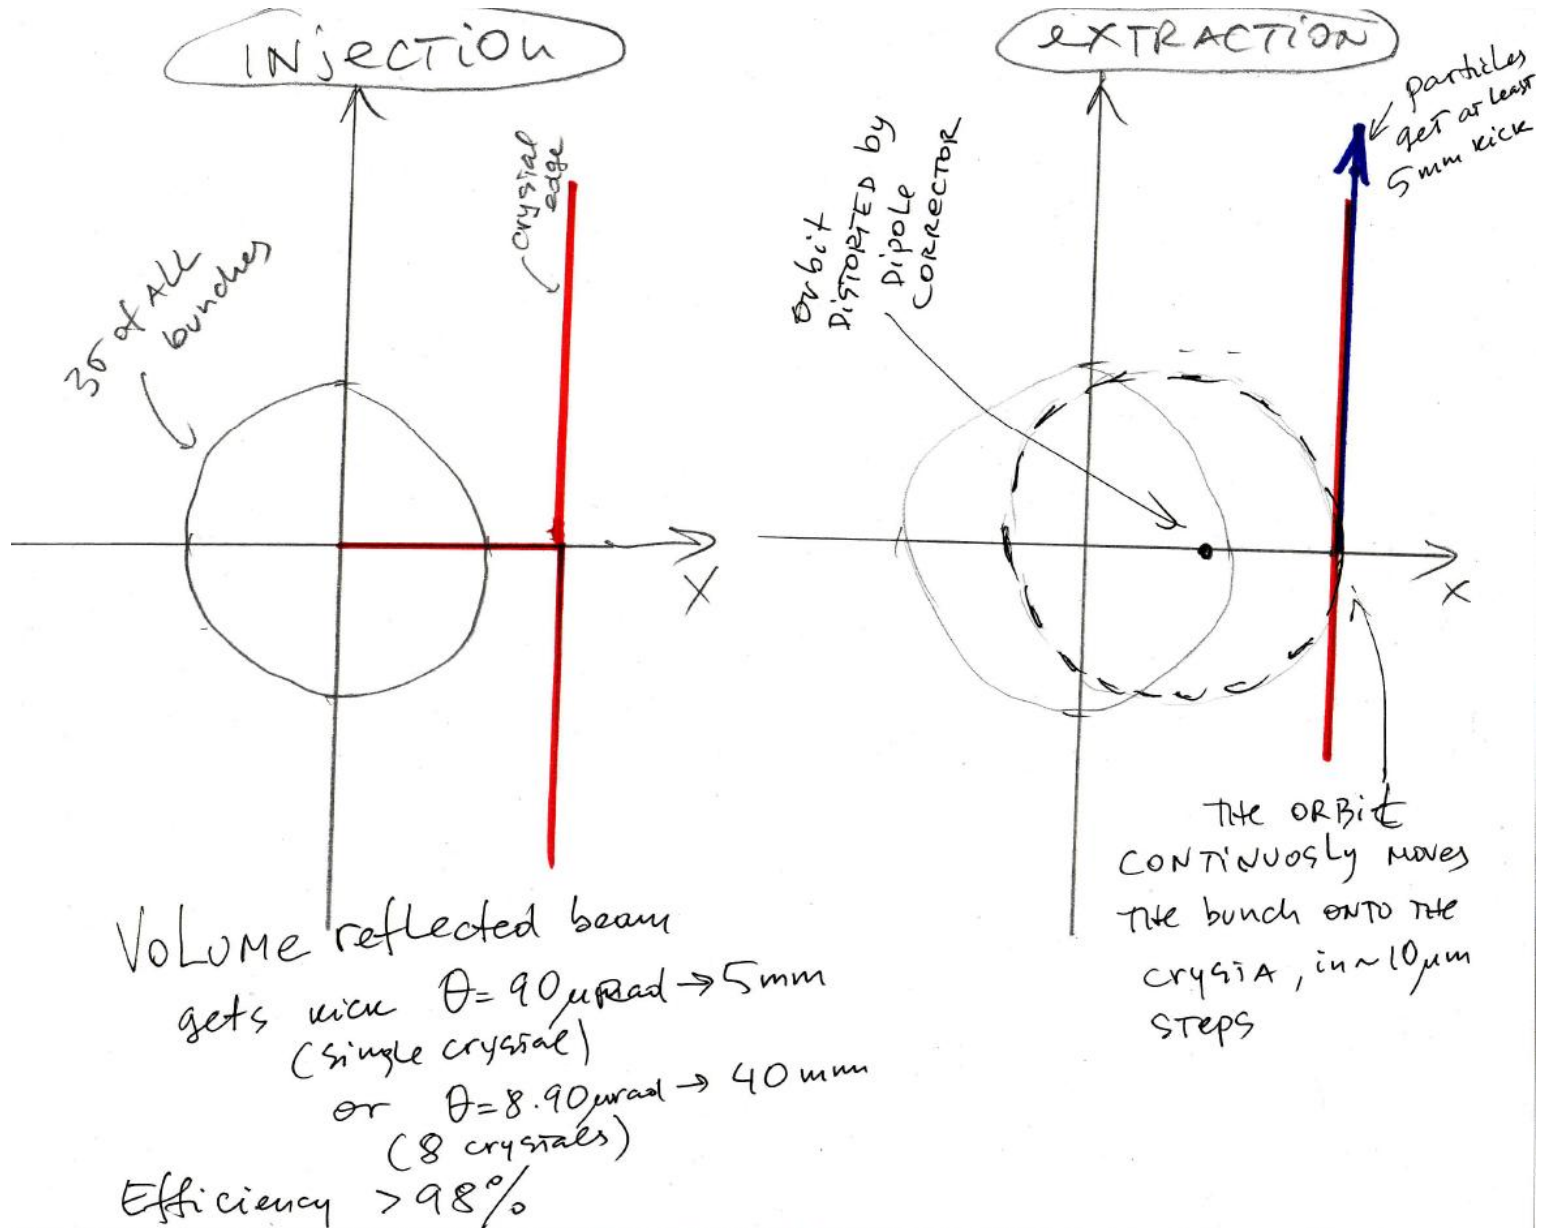 INjECTION
3σ of ALL
bunches
crystal
edge
Volume reflected beam
gets kick θ = 90 μRad → 5mm
(single crystal)
or θ = 8·90 μrad → 40 mm
(8 crystals)
Efficiency > 98%
X
eXTRACTION
particles
get at least
5 mm kick
Orbit
DISTORTED by
Dipole
CORRECTOR
X
THE ORBIT
CONTINUOSLY MOVES
THE bunch ONTO THE
CrysTA, in ~ 10 μm
STEPS